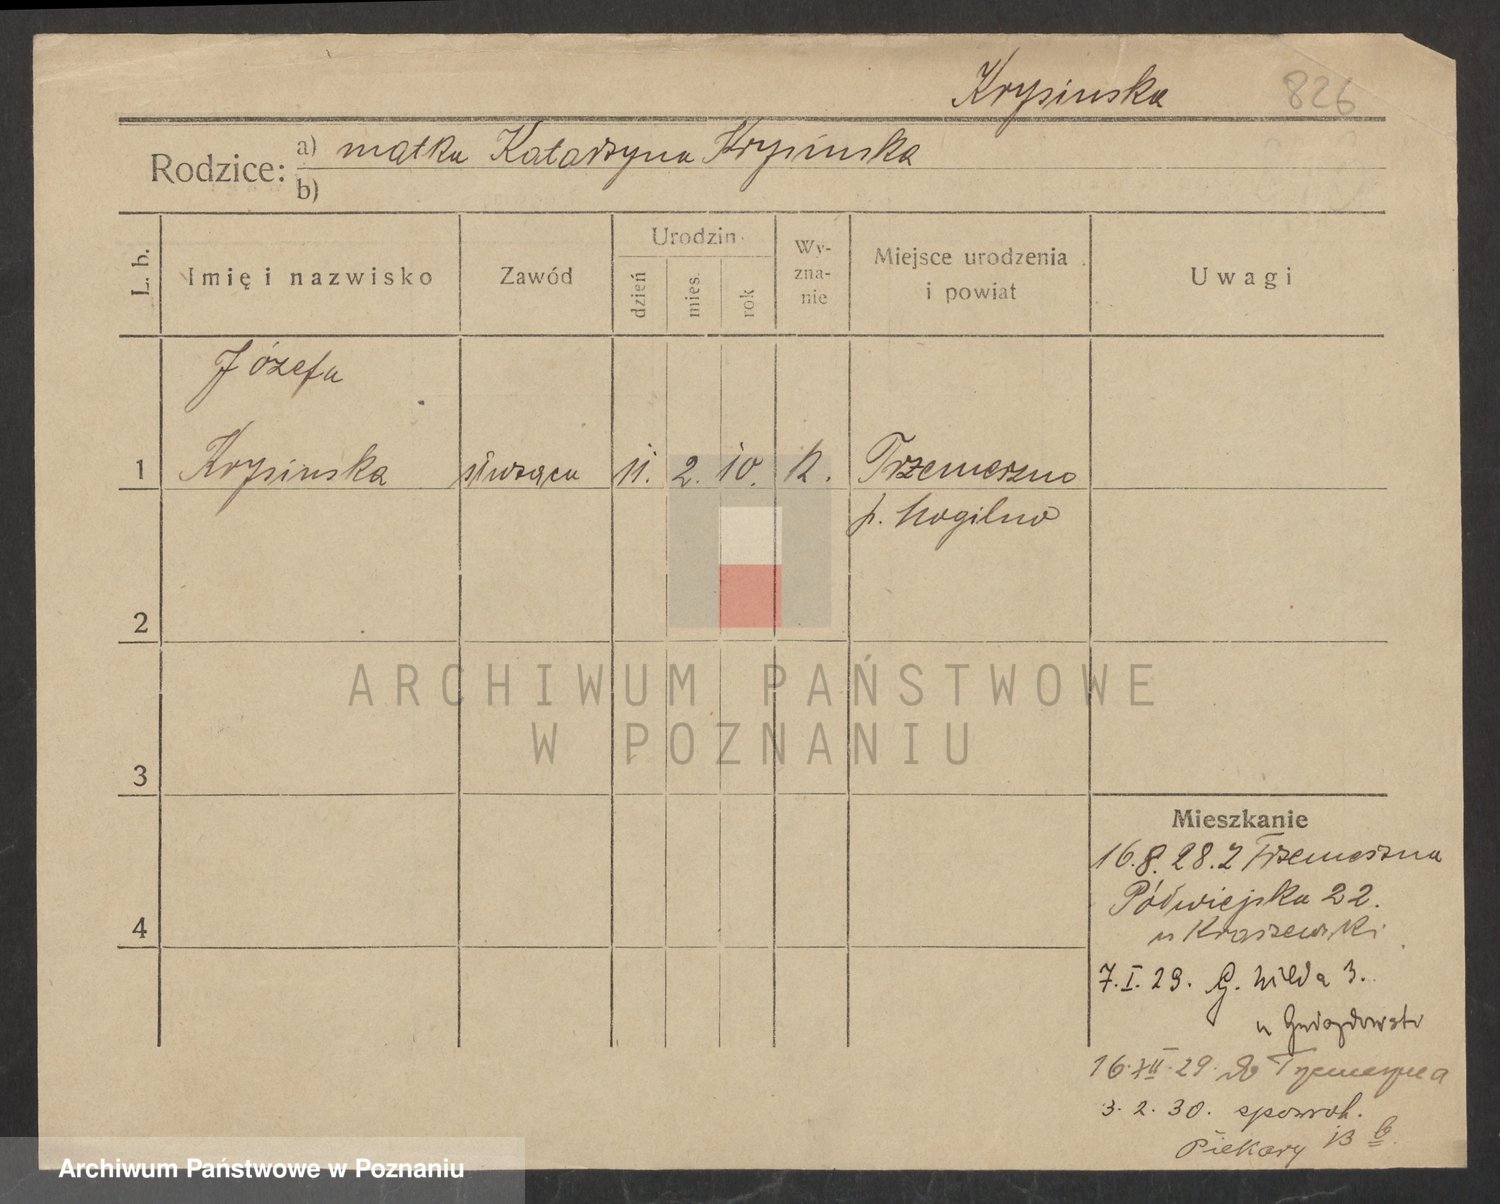 Krysinska 826
Rodzice: a) matka Katarzyna Krysinska
b)
L. b. Imię i nazwisko Zawód Urodzin dzień mies. rok Wy-zna-nie Miejsce urodzenia i powiat Uwagi
Józefa
1 Krysinska służąca 11. 2. 10. K. Trzemeszno
p. Mogilno
2
ARCHIWUM PAŃSTWOWE
W POZNANIU
3
Mieszkanie
16.8.28. z Trzemeszna
Półwiejska 22.
4
u Kraszewski
7.I.29. G. Wilda 3.
u Gwiazdowski
16.XII.29. do Trzemeszna
3.2.30. spowrot.
Piekary 13
Archiwum Państwowe w Poznaniu